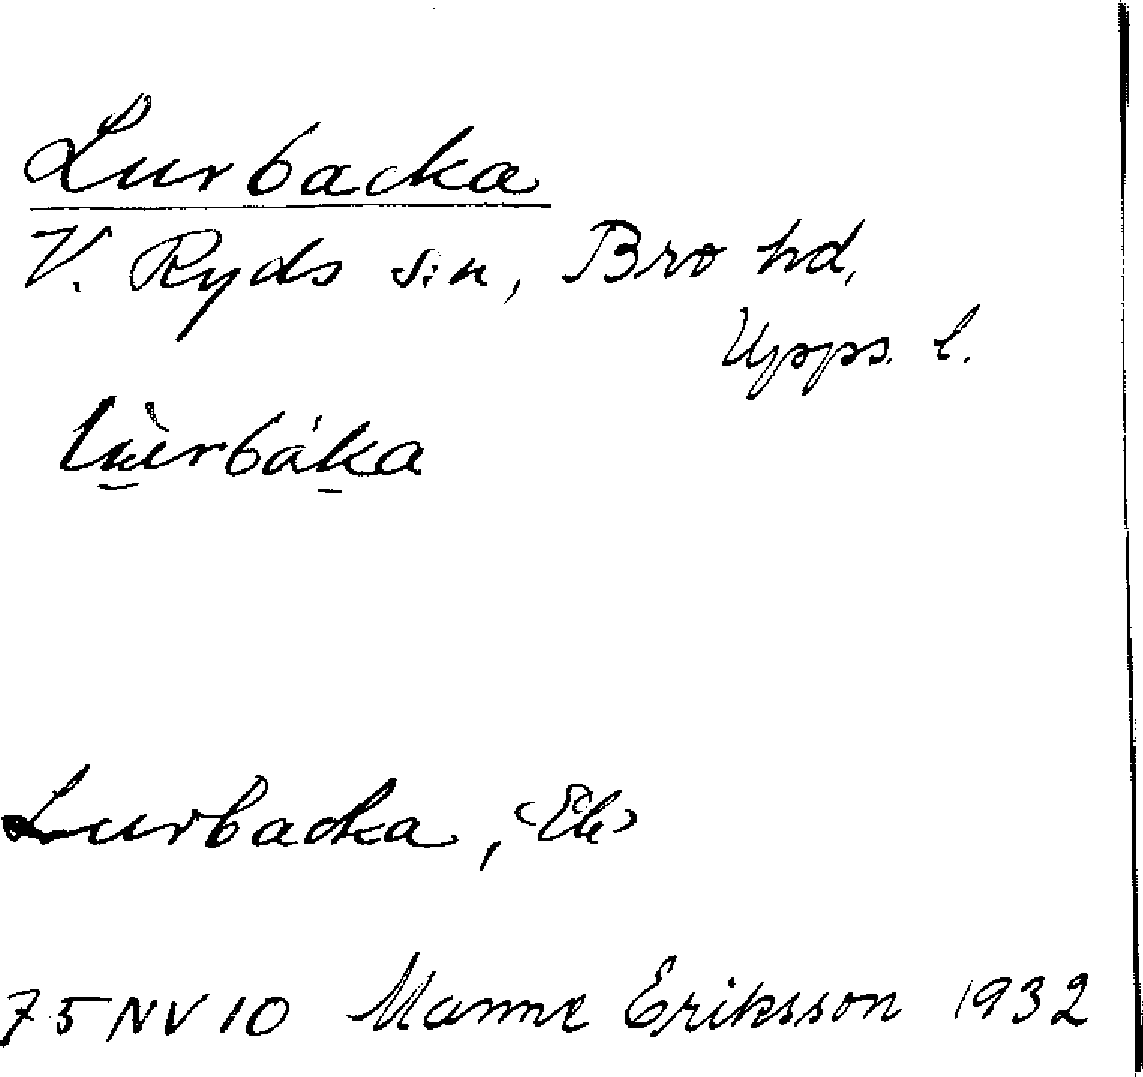 Lurbacka
V. Ryds sn, Bro hd,
Upps. l.
lù̱rbák̠a
Lurbacka, <Ek>
75 NV 10 Manne Eriksson 1932